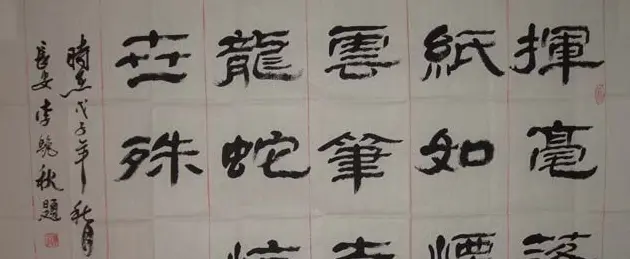 揮毫落
紙如煙
雲筆走
龍蛇
世殊
時在戊子年秋月
長安李秋題